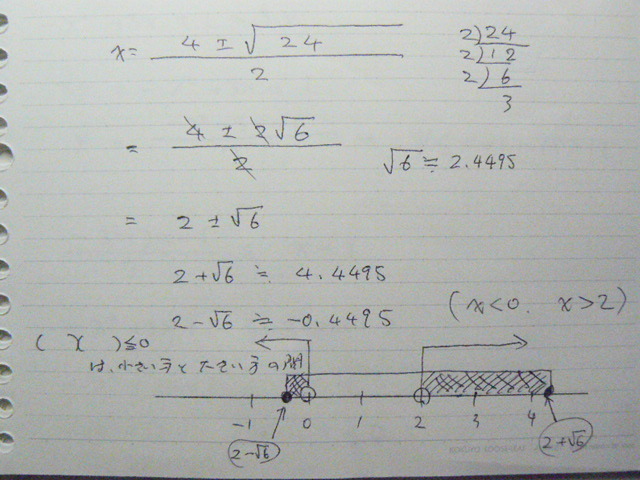 x = (4 ± √24) / 2
2)24
2)12
2)6
3
= (4 ± 2√6) / 2
√6 ≒ 2.4495
= 2 ± √6
2+√6 ≒ 4.4495
2-√6 ≒ -0.4495
(x<0. x>2)
( )( )≦0
は、小さい方と大きい方の間
-1 0 1 2 3 4
2-√6
2+√6